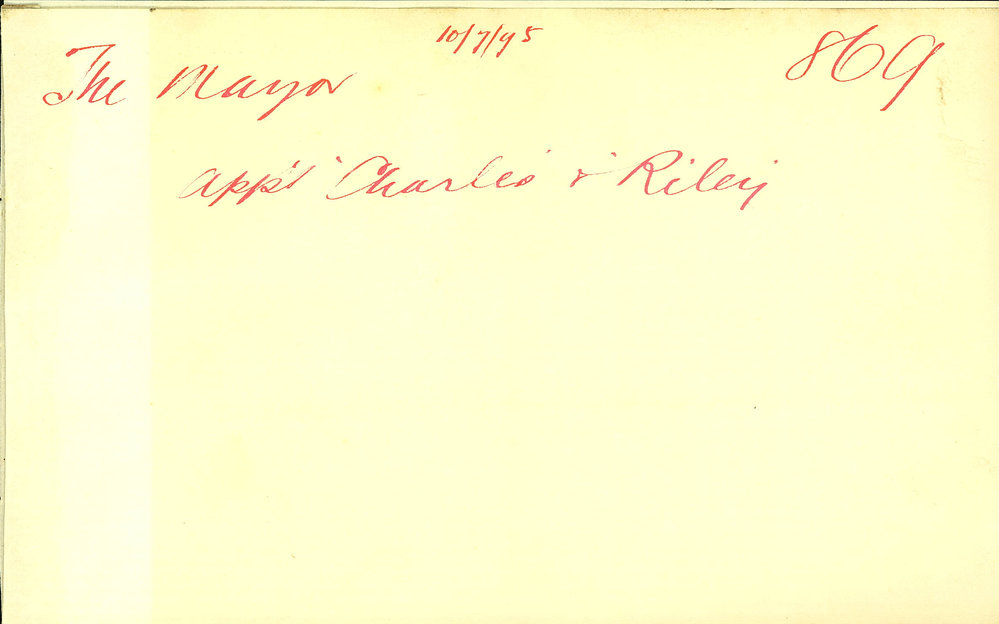 10/7/95
The Mayor 869
app't Charles & Riley